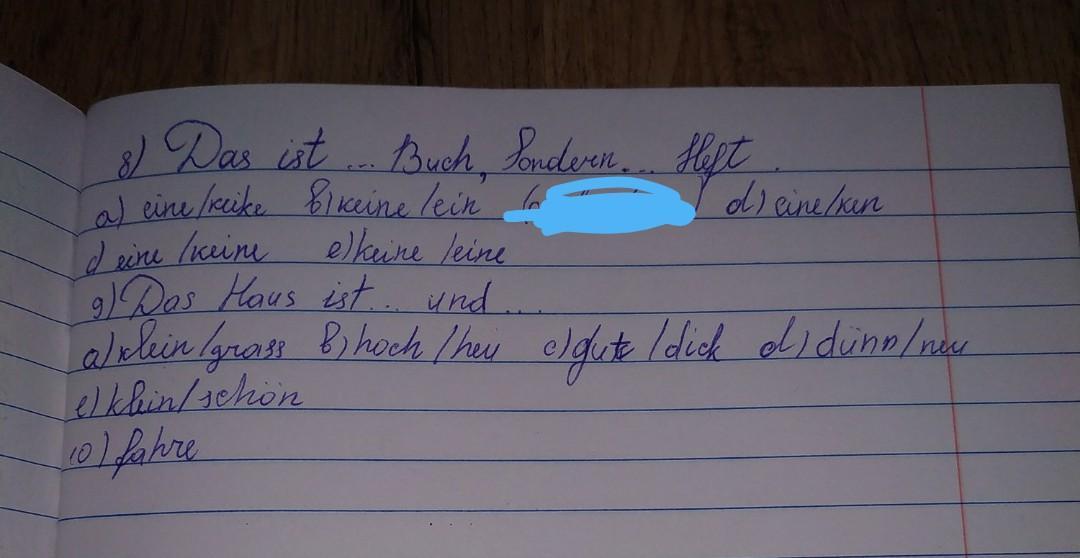 8) Das ist ... Buch, Sondern... Heft.
a) eine/keike b) keine/ein d) eine/ken
d eine/keine e) keine/eine
9) Das Haus ist... und ....
a) klein/grass b) hoch/heu c) gute/dick d) dünn/neu
e) klein/schön
10) fahre